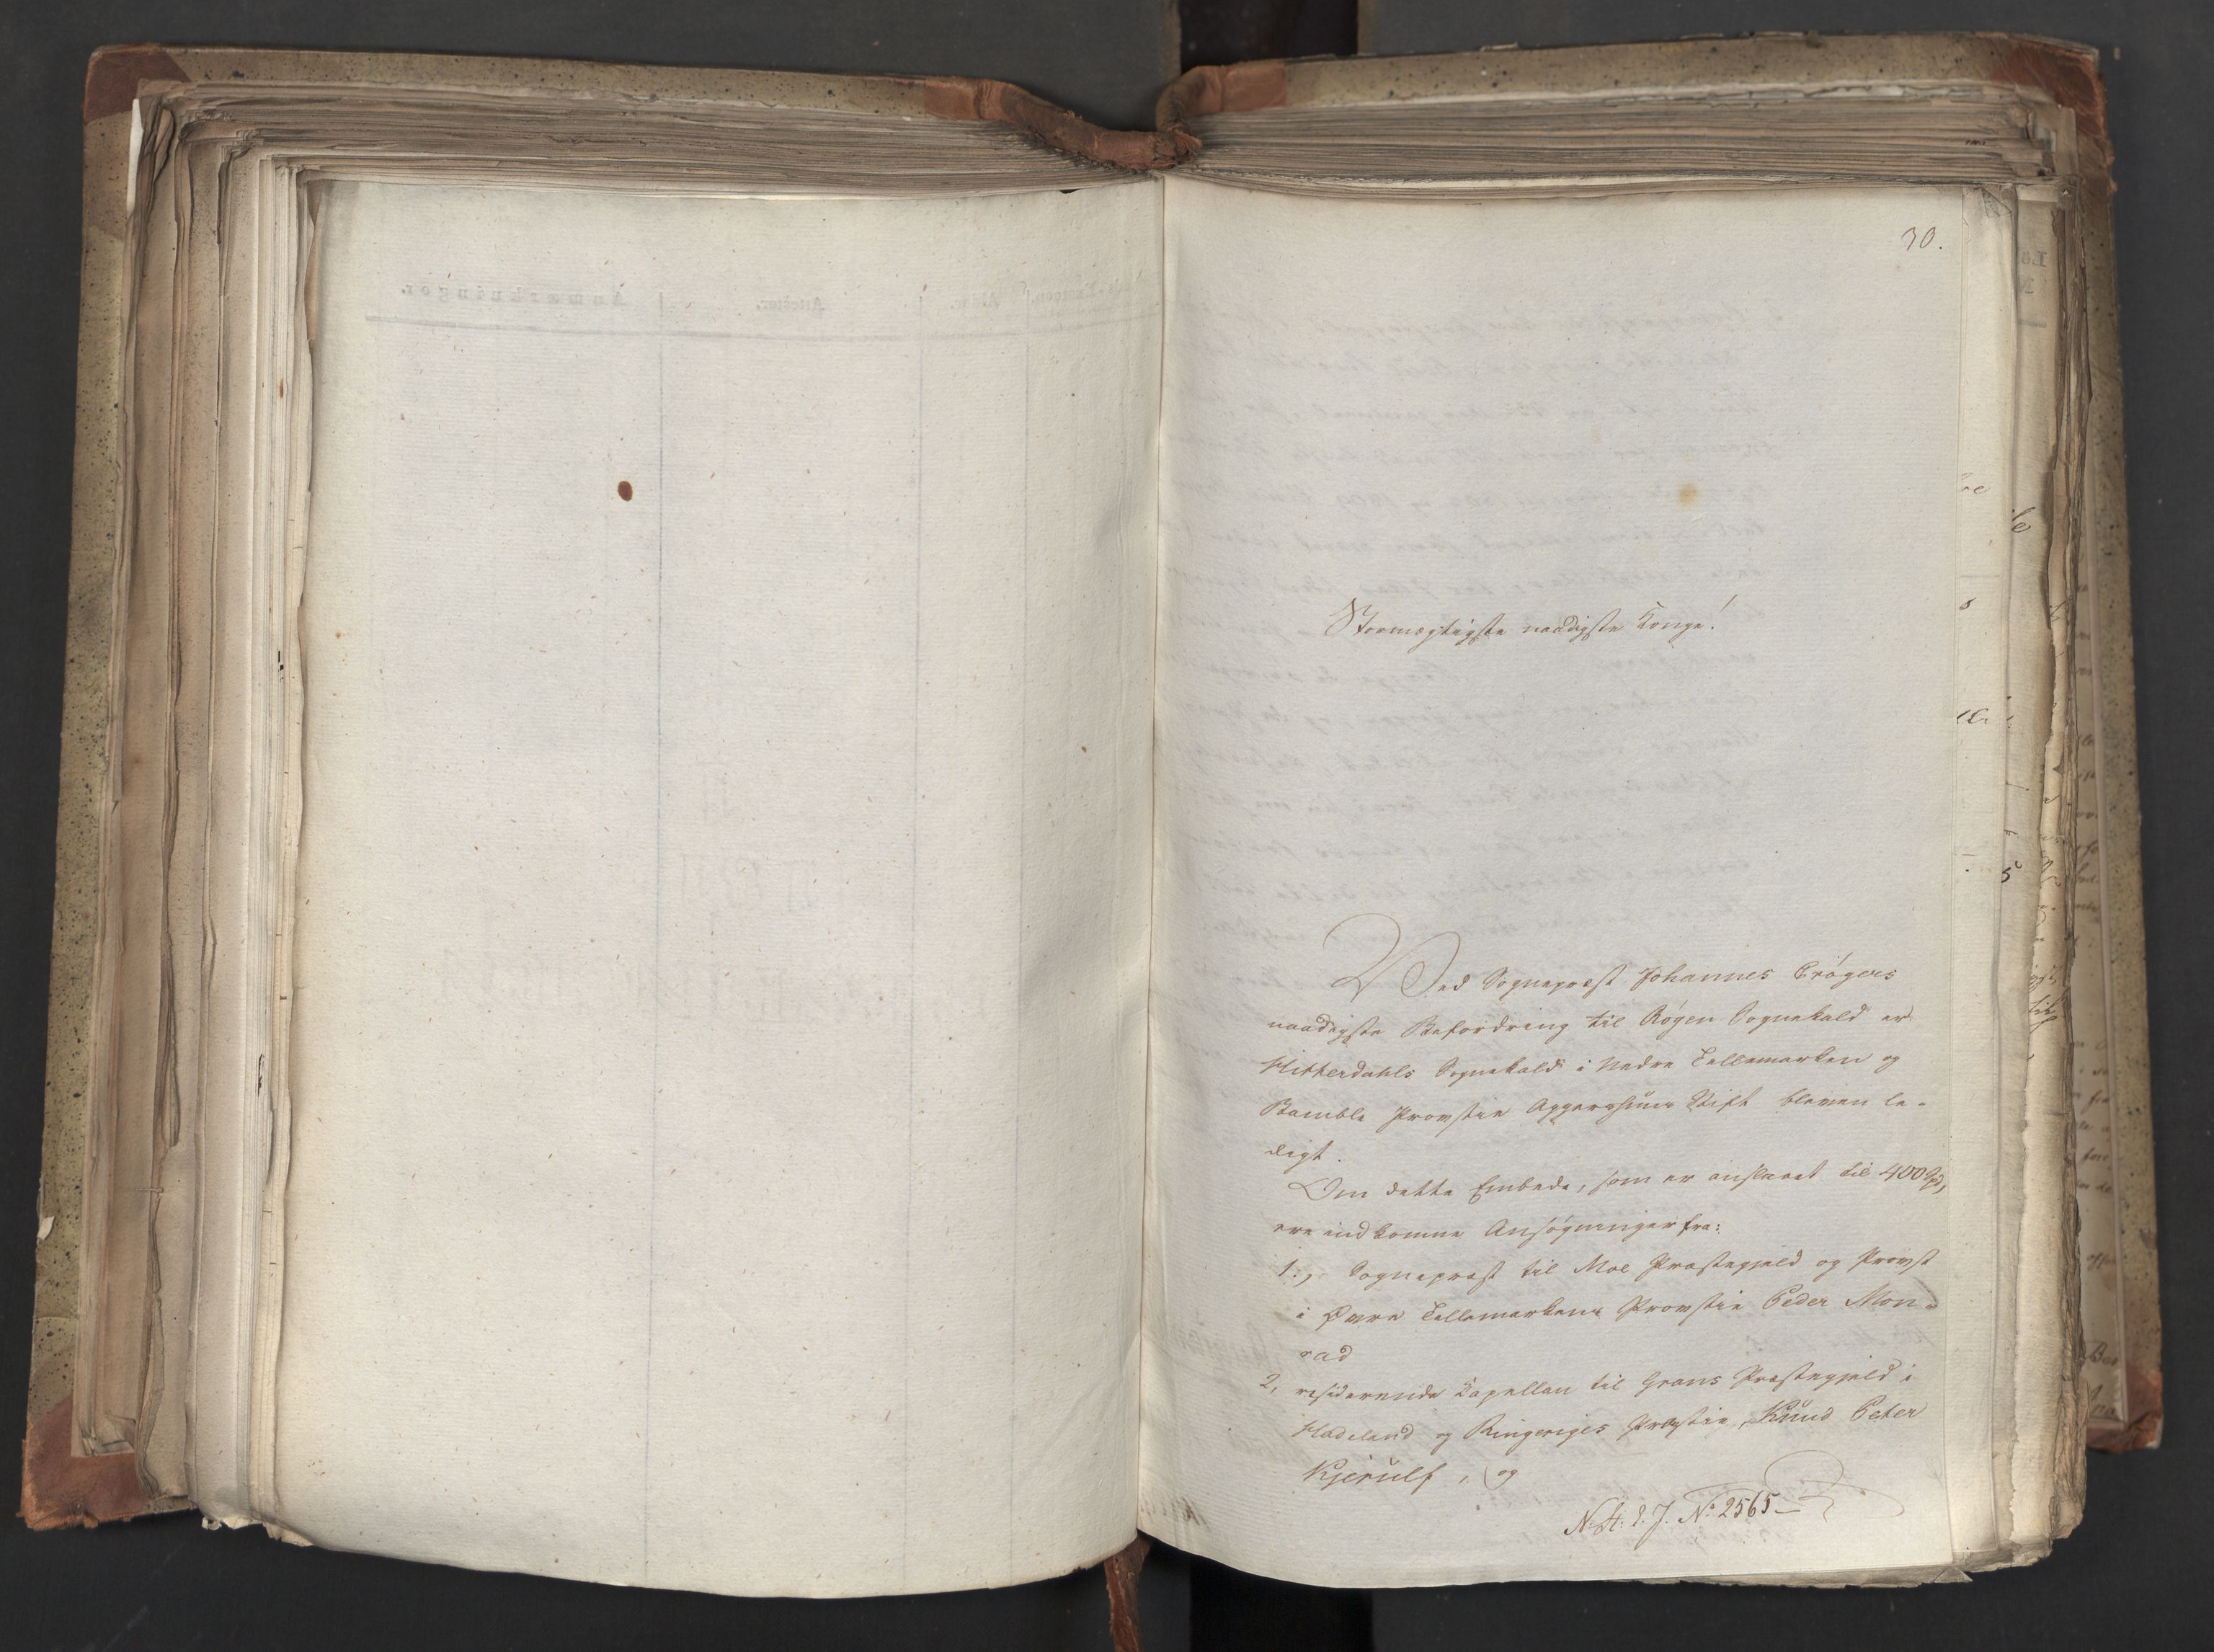 30.
Stormægtigste naadigste Konge!
Ved Sognepræst Johannes Crøgers
naadigste Befordring til Røgen Sognekald er
Hitterdahls Sognekald i Nedre Tellemarken og
Bamble Provstie Aggershuus Stift bleven le-
digt.
Om dette Embede, som er anslaaet til 400 Spd,
ere indkomne Ansøgninger fra:
1., Sognepræst til Moe Præstegjeld og Provst
i Øvre Tellemarkens Provstie Peder Mon-
rad
2, residerende Kapellan til Grans Præstegjeld i
Hadeland og Ringeriges Provstie, Knud Peter
Kjerulf, og
N. H. d. J. No 2565